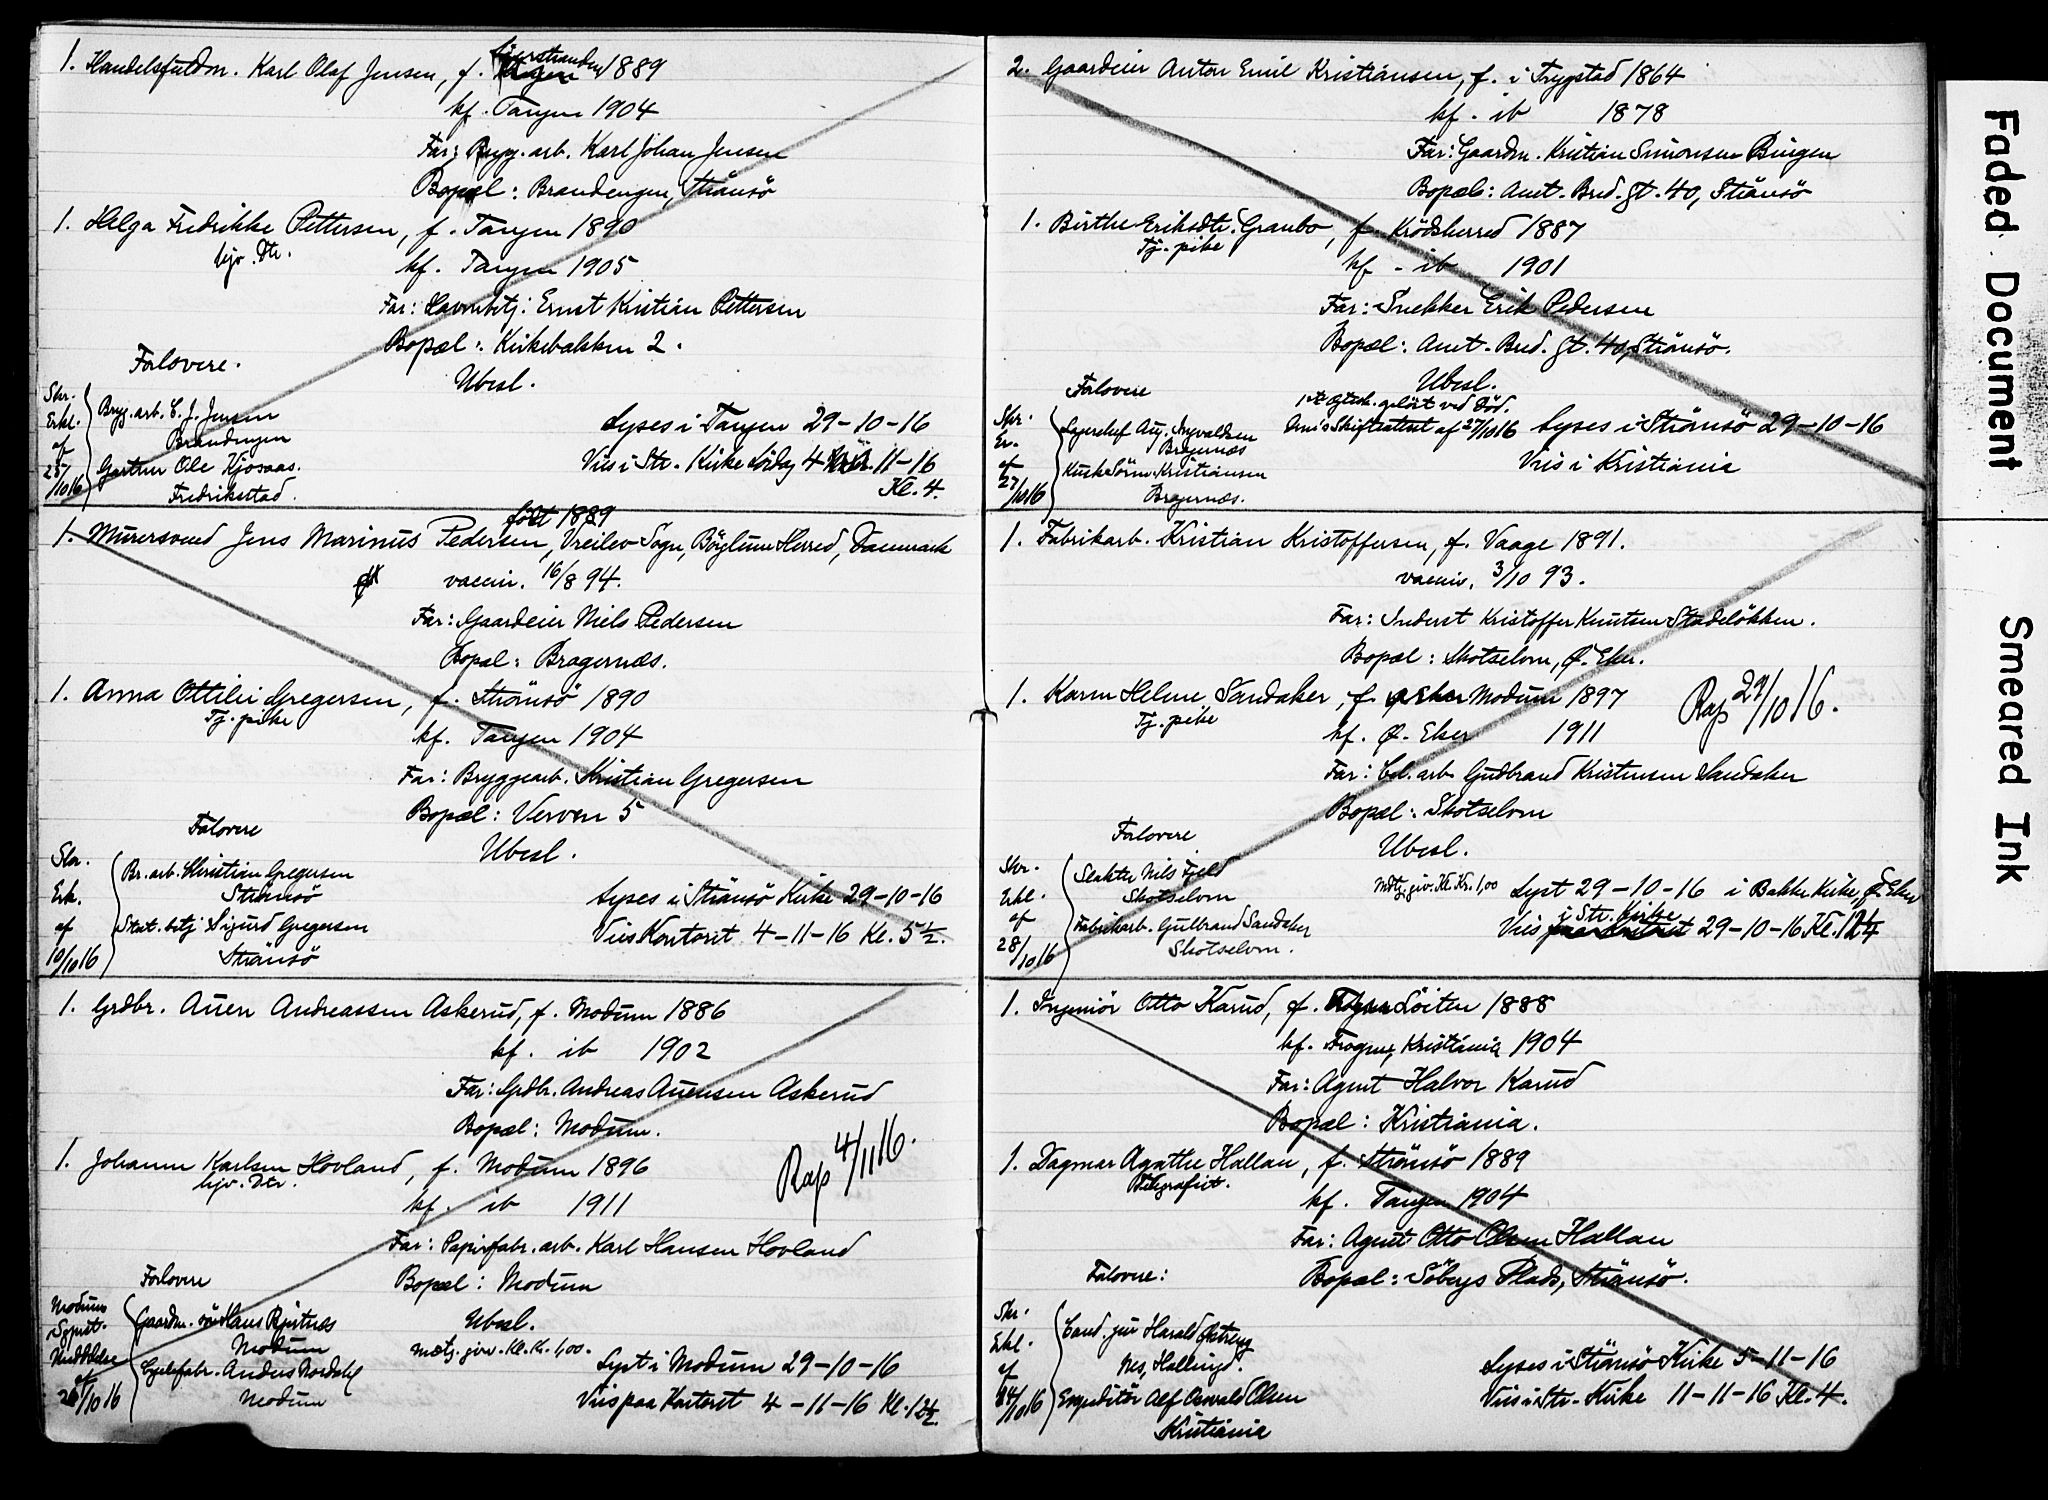 1. Handelsfuldm. Karl Olaf Jensen, f. 1889
kf. Tangen 1904
Far: Bryg. arb. Karl Johan Jensen
Bopæl: Brandengen, Strömsö
1. Helga Fredrikke Pettersen, f. Tangen 1890
hjv. Dtr.
kf. Tangen 1905
Far: Havnebtj: Ernst Kristian Pettersen
Bopæl: Kirkebakken 2.
Forlovere.
Ubesl.
Skr.
Erkl.
af
25/10 16
Bryg. arb. C. J. Jensen
Brandengen
Gartner Ole Kjosaas.
Fredrikstad.
Lyses i Tangen 29-10-16
Vies i Str. Kirke Lördag 4 11-16
Kl. 4.
født 1889
1. Murersvend Jens Marinus Pedersen, Vreilev Sogn, Böylum Herred, Danmark
vaccin. 16/8 94.
Far: Gaardeier Niels Pedersen
Bopæl: Bragernæs.
1. Anna Ottilie Gregersen, f. Strömsö 1890
Tj. pike
kf. Tangen 1904
Far: Bryggearb. Kristian Gregersen
Bopæl: Verven 5
Forlovere
Ubesl.
Skr.
Erk.
af
10/10 16
Br. arb. Kristian Gregersen
Strömsö
Stat. btj Sigurd Gregersen
Strömsö
Lyses i Strömsö Kirke 29-10-16
Vies Kontoret 4-11-16 Kl. 5½.
1. Grdbr. Auen Andreassen Askerud, f. Modum 1886
kf. ib 1902
Far: Grdbr. Andreas Auensen Askerud
Bopæl: Modum.
Rap 4/11 16.
1. Johanne Karlsen Hovland, f. Modum 1896
hjv. Dtr.
kf. ib 1911
Far: Papirfabr. arb. Karl Hansen Hovland
Forlovere
Bopæl: Modum
Modums
Sognpr.
Meddelelse
af
26/10 16
Gaardm. Hans
Modum
Anders Rosdahl
Modum
Ubesl.
Mdtj. giv. Kl. Kr. 1,00.
Lyst i Modum 29-10-16
Vies paa Kontoret 4-11-16 Kl. 12½.
2. Gaardeier Anton Emil Kristiansen, f. i Trygstad 1864
kf. ib 1878
Far: Gaardm. Kristian Simonsen Bingen
Bopæl: Amt. Bred. gt. 40, Strömsö
1. Birthe Eriksdtr. Graubo, f. Krödsherred 1887
Tj. pike
kf - ib 1901
Far: Snekker Erik Pedersen
Bopæl: Amt. Bred. gt. 40, Strömsö.
Forlovere
Ubesl.
1st Ægtesk. oplöst ved Död.
Skr.
Er.
af
27/10 16
Lagerchef Aug. Ingvaldsen
Bragernæs
Kusk Sören Kristiansen
Bragernæs.
Omis Skifteattest af 27/10 16 Lyses i Strömsö 29-10-16
Vies i Kristiania
1. Fabrikarb. Kristian Kristoffersen, f. Vaage 1891.
vaccin. 3/10 93.
Far: Inderst Kristoffer Knutsen Stadelökken.
Bopæl: Skotselven, Ø. Eker.
1. Karen Helene Sandaker, f. Modum 1897
Tj. pike
Rap 29/10 16.
kf. Ø. Eker 1911
Far: Cel. arb. Gudbrand Kristensen Sandaker
Bopæl: Skotselven
Forlovere
Ubesl.
Skr.
Erkl.
af
28/10 16
Slakter Nils Fjeld
Skotselven
Fabrikarb. Gulbrand Sandaker
Skotselven.
Mdtj. giv. Kl. Kr. 1,00 Lyst 29-10-16 i Bakke Kirke, Ø. Eker
i Str. Kirke
Vies 29-10-16 Kl. 12¼
1. Ingeniör Otto Karud, f. Löiten 1888
kf. Frogner, Kristiania 1904
Far: Agent Halvor Karud
Bopæl: Kristiania.
1. Dagmar Agathe Hallan, f. Strömsö 1889
Telegrafist.
kf. Tangen 1904
Far: Agent Otto Olsen Hallan
Forlovere:
Bopæl: Söbergs Plads, Strömsö.
Skr.
Erkl.
af
24/10 16
Cand. jur Harald Østreng
Nes, Hallingd.
Expeditör Alf Oswald Olsen
Kristiania
Lyses i Strömsö Kirke 5-11-16
Vies i Str. Kirke 11-11-16 Kl. 4.
Faded Document
Smeared Ink